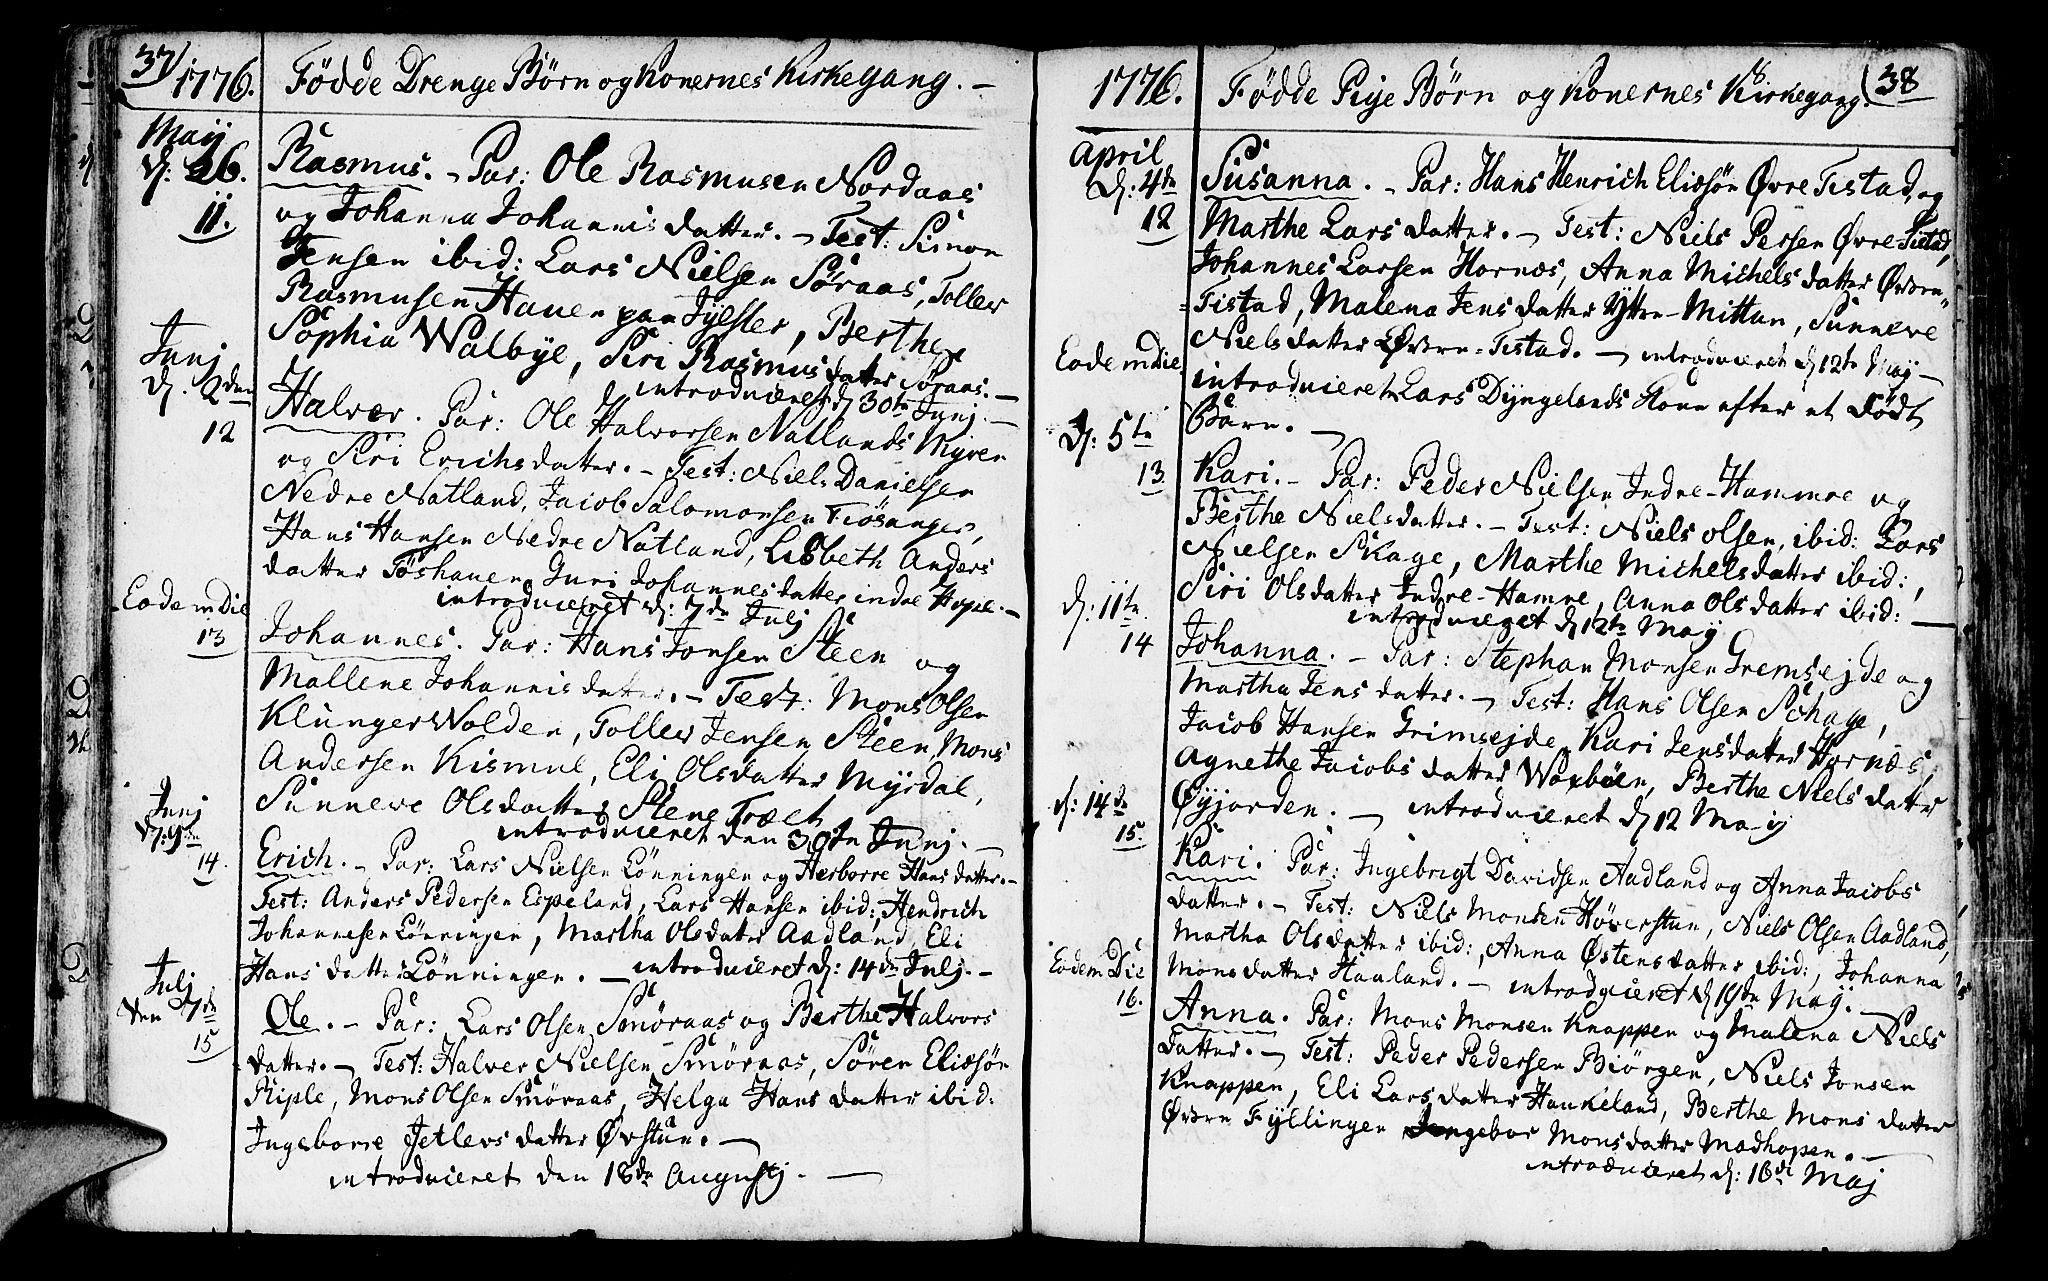 37)
1776. Fødde Drenge Børn og Konernes Kirkegang. -
Maij
d: 26.
11.
Rasmus. - Par: Ole Rasmusen Nordaas
og Johanna Johannis datter. - Test: Simon
Jensen ibid: Lars Nielsen Søraas, Tollev
Rasmusen Hauen paa Jyelster, Berthe
Sophia Walbye, Siri Rasmus datter Søraas. -
introducieret d 30te Junj. -
Junj
d. 2den
12
Halvor. Par: Ole Halvorsen Natlands Myren
og Siri Erichs datter. - Test: Niels Danielsen
Nedre Natland, Jacob Salomonsen Tiøsanger,
Hans Hansen Nedre Natland, Lisbeth Anders
datter Tøshauen Guri Johannes datter indre Hope. -
introducieret d: 7de Julj
Eodem Die
13
Johannes. Par: Hans Jonsen Steen og
Mallene Johannis datter. - Test: Mons Olsen
Klungerwolden, Tollev Jensen Steen, Mons
Andersen Kismul, Eli Olsdatter Myrdal,
Sunneve Olsdatter Stene Træet
introducieret den 30te Junj. -
Junj
d: 9de
14.
Erich. - Par: Lars Nielsen Lønningen og Herborre Hans datter. -
Test: Anders Pedersen Espeland, Lars Hansen ibid:, Hendrich
Johannesen Lønningen, Martha Olsdatter Aadland, Eli
Hans datter Lønningen. - introducieret d: 14de Julj. -
Julj
den 7de
15
Ole. - Par: Lars Olsen Smøraas og Berthe Halvors
datter. - Test: Halver Nielsen Smøraas, Søren Eliæsøn
Riple, Mons Olsen Smøraas, Helga Hans datter ibid:
Ingeborre Jetlevs datter Øvstun. -
introducieret den 18de Augustj. -
1776. Fødde Pige Børn og Konernes Kirkegang. (38
April
d: 4de
12
Susanna. - Par: Hans Henrich Eliæsøn Øvre Tistad, og
Marthe Lars datter. - Test: Niels Persen Øvre Tistad,
Johannes Larsen Hornæs, Anna Michels datter Øvern=
=Tistad, Malena Jens datter Yttre-Mittun, Sunneve
Niels datter Øvern=Tistad. - introducieret d 12te Maj -
Eodem Die
introducieret Lars Dyngelands Kone efter et Født
Barn. -
d: 5te
13.
Kari. - Par: Peder Nielsen Indre-Hammre og
Berthe Nielsdatter. - Test: Niels Olsen, ibid: Lars
Nielsen Skage, Marthe Michelsdatter ibid:,
Siri Olsdatter Indre-Hamre, Anna Olsdatter ibid: -
introducieret d 12te Maij
d: 11te
14
Johanna. - Par: Stephan Monsen Gremsejde og
Martha Jens datter. - Test: Hans Olsen Schage,
Jacob Hansen Grimsejde, Kari Jensdatter Hornæs,
Agnethe Jacobs datter Waxbøen, Berthe Niels datter
Øyjorden. - introducieret d 12 Maij
d: 14de
15.
Kari. Par: Ingebrigt Davidsen Aadland og Anna Jacobs
datter. - Test: Niels Monsen Høverstun, Niels Olsen Aadland,
Martha Olsdatter ibid:, Anna Østensdatter ibid:, Johanna
Monsdatter Haaland. - introducieret d 19de Maij. -
Eodem Die
16.
Anna. Par: Mons Monsen Knappen og Malena Niels
datter. - Test: Peder Pedersen Biørgen, Niels Jonsen
Knappen, Eli Larsdatter Haukeland, Berthe Mons datter
Øvern Fyllingen, Ingebor Monsdatter Madhopen. -
introducieret d: 16de Maj